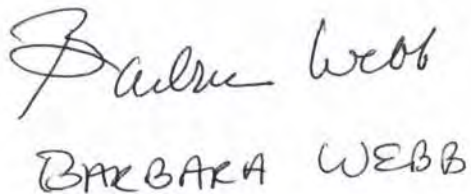 Barbara Webb
BARBARA WEBB